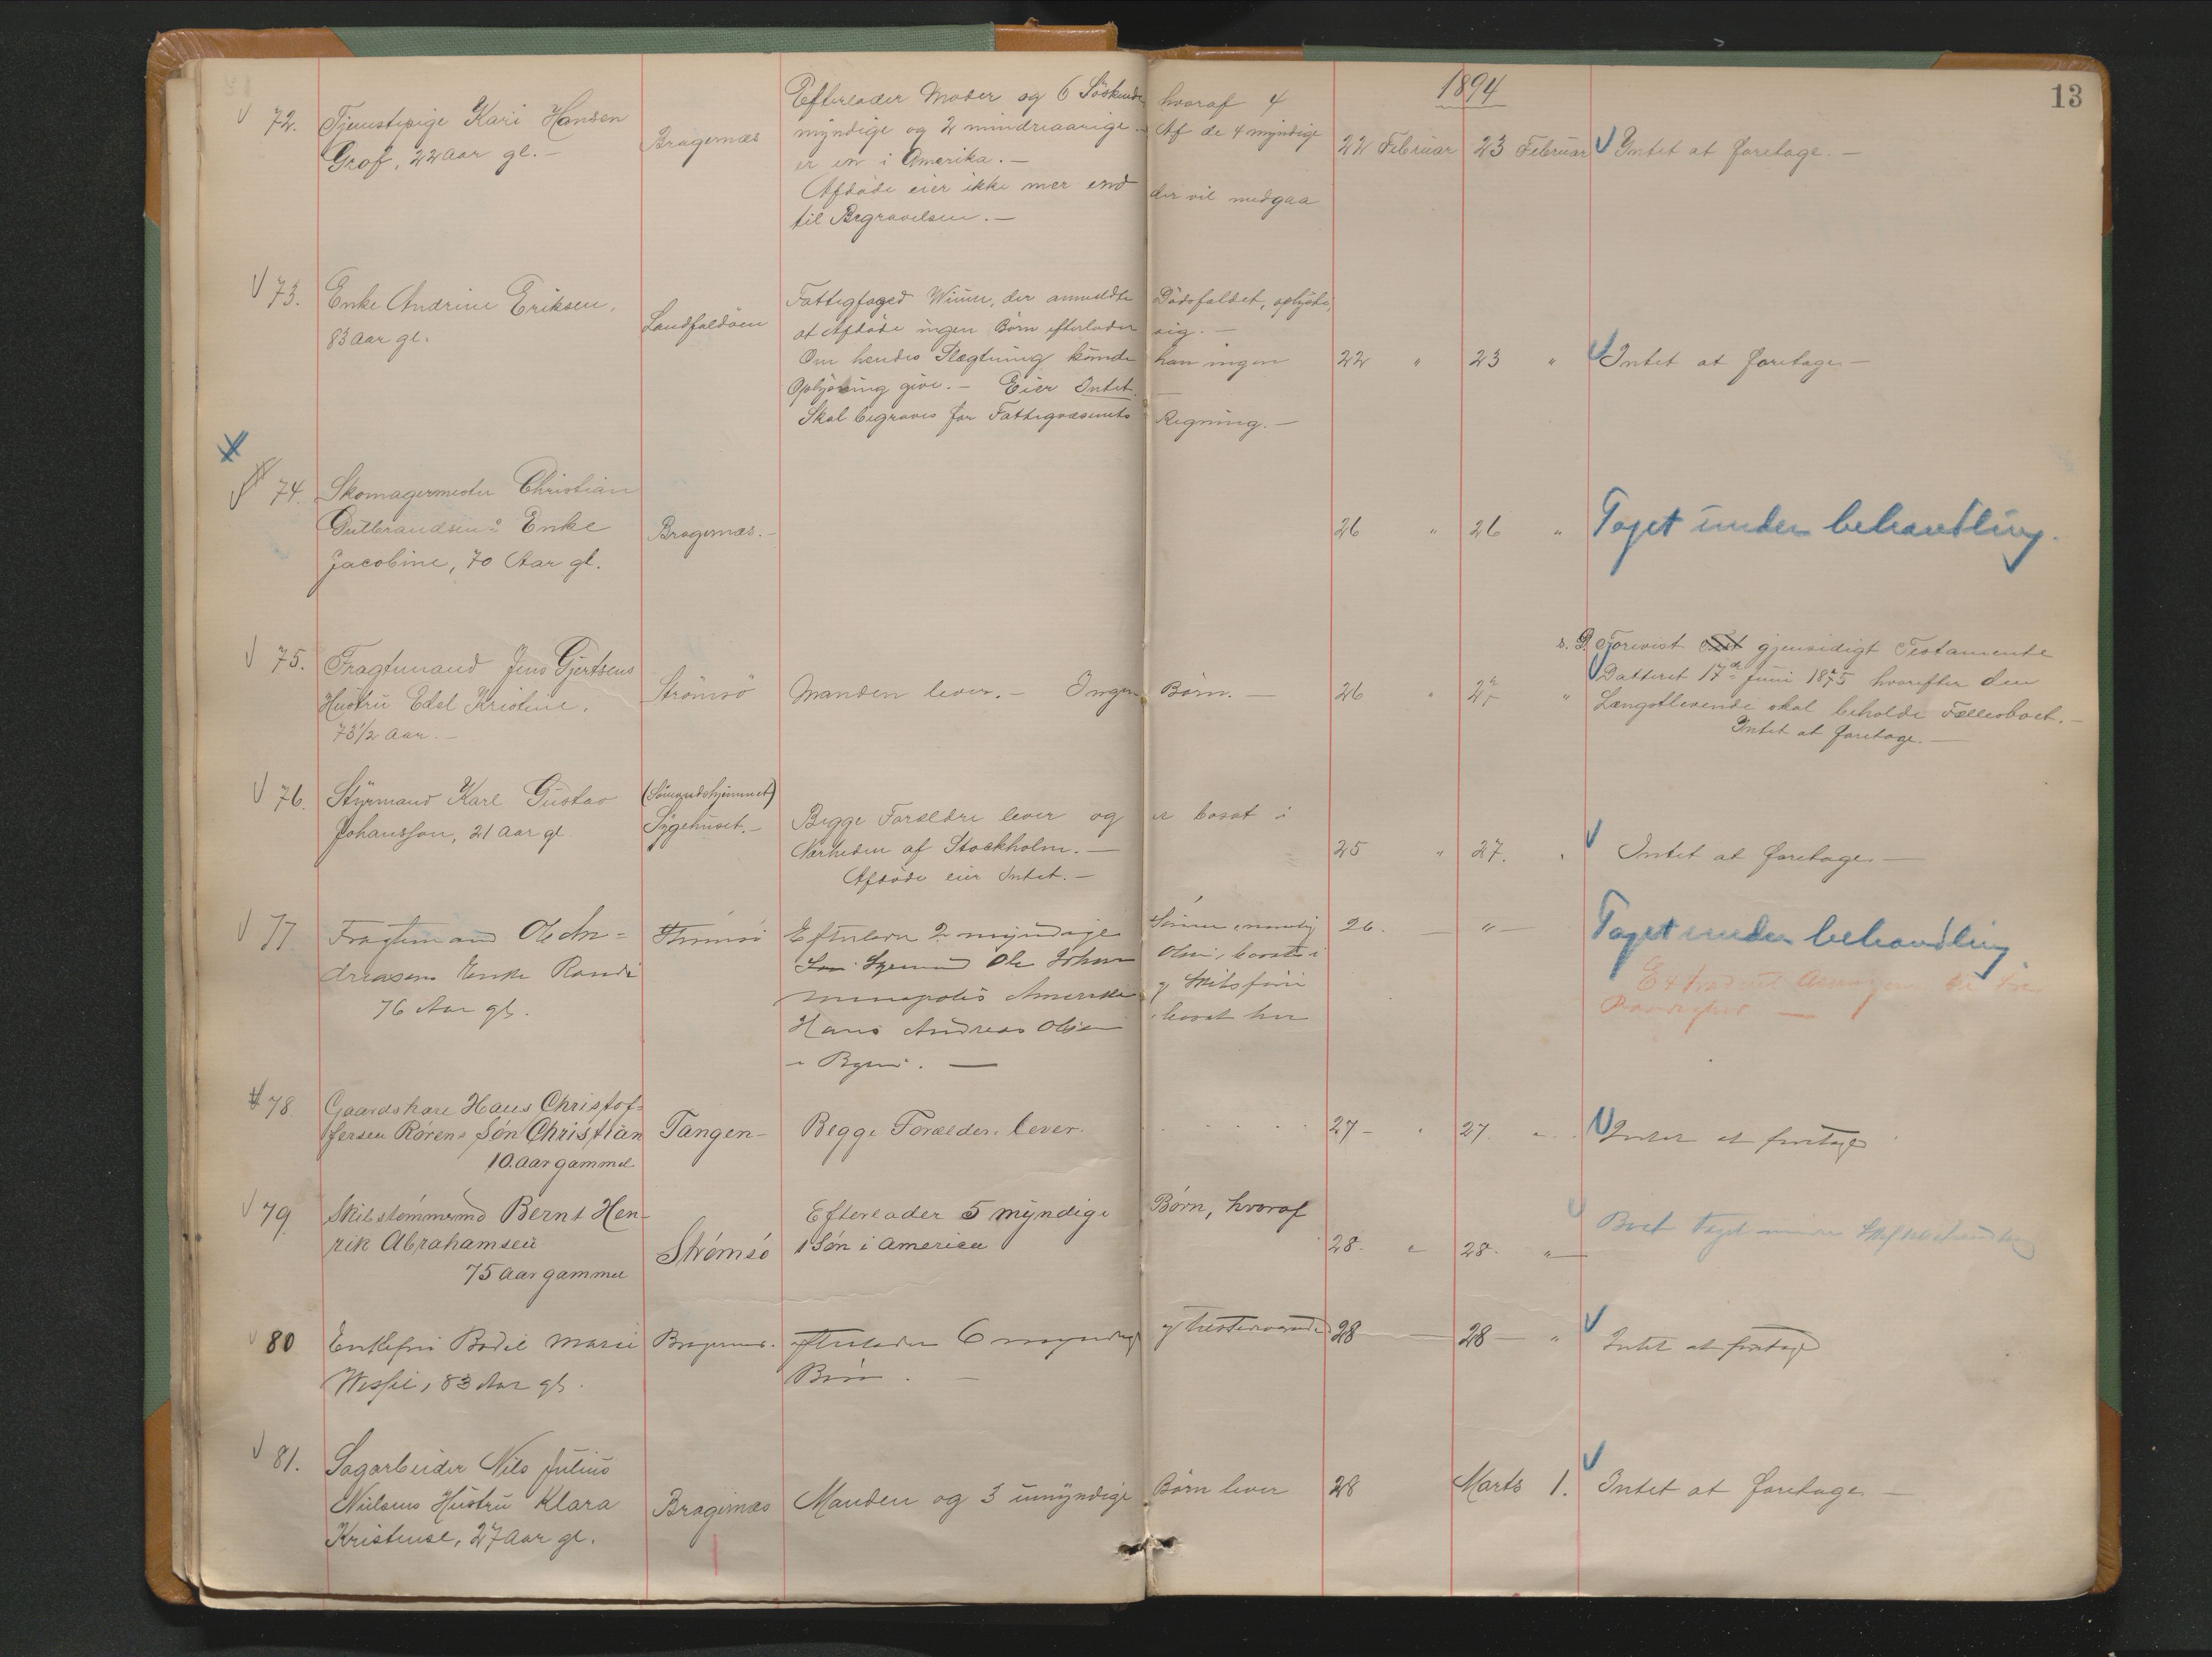 1894
13
72. Tjenestepige Kari Hansen
Grof, 22 Aar gl. —
Bragernæs
Efterlader Moder og 6 Söskende hvoraf 4
myndige og 2 mindreaarige. Af de 4 myndige
er en i Amerika. —
Afdöde eier ikke mer end der vil medgaa
til Begravelsen. —
22 Februar 23 Februar Intet at foretage. —
73. Enke Andrine Eriksen,
83 Aar gl.
Landfaldöen
Fattigfoged Wium, der anmeldte Dödsfaldet, oplyste,
at Afdöde ingen Börn efterlader sig. —
Om hendes Slægtning kunde han ingen
Oplysning give. — Eier Intet.
Skal begraves for Fattigvæsenets Regning. —
22 " 23 " Intet at foretage —
74. Skomagermester Christian
Gulbrandsens Enke
Jacobine, 70 Aar gl.
Bragernæs. —
26 " 26 " Taget under behandling.
75. Fragtmand Jens Gjertsens
Hustru Edel Kristine,
73 1/2 Aar. —
Strömsö
Manden lever. — Ingen Börn. —
26 " 27 "
s. D. Forevist gjensidigt Testamente
Datteret 17de Juni 1875 hvorefter den
Længstlevende skal beholde Fællesboet. —
Intet at foretage. —
76. Styrmand Karl Gustav
Johansson, 21 Aar gl.
(Sömandshjemmet)
Sygehuset. —
Begge Forældre lever og er bosat i
Nærheden af Stockholm. —
Afdöde eier Intet. —
25 " 27. " Intet at foretage. —
77 Fragtemand Ole An=
dreasens Enke Randi
76 Aar gl.
Strömsö
Efterlader 2 myndige Sönner nemlig
Ole Johan Olsen, bosat i
Minapolis Amerika og
Hans Andreas Olsen bosat her
i Byen. —
26. — " — Taget under behandling
78. Gaardskarl Hans Christof=
fersen Rørens Søn Christian
10 Aar gammel
Tangen —
Begge Forælder. lever.
27 — " 27. " Intet at foretage
79. Skibstømmermd Bernt Hen-
rik Abrahamsen
75 Aar gammel
Strømsø
Efterlader 5 myndige Børn, hvoraf
1 Søn i America
28. " 28. " — Boet Taget under Skiftebehandling
80 Enkefru Bodil Marie
Wessel, 83 Aar gl.
Bragernes.
efterlader 6 myndige og tilstedeværende
Börn. —
28 — 28 — " Intet at foretage
81. Sagarbeider Nils Julius
Nielsens Hustru Klara
Kristense, 27 Aar gl.
Bragernæs
Manden og 3 umyndige Börn lever
28 Marts 1. Intet at foretage —